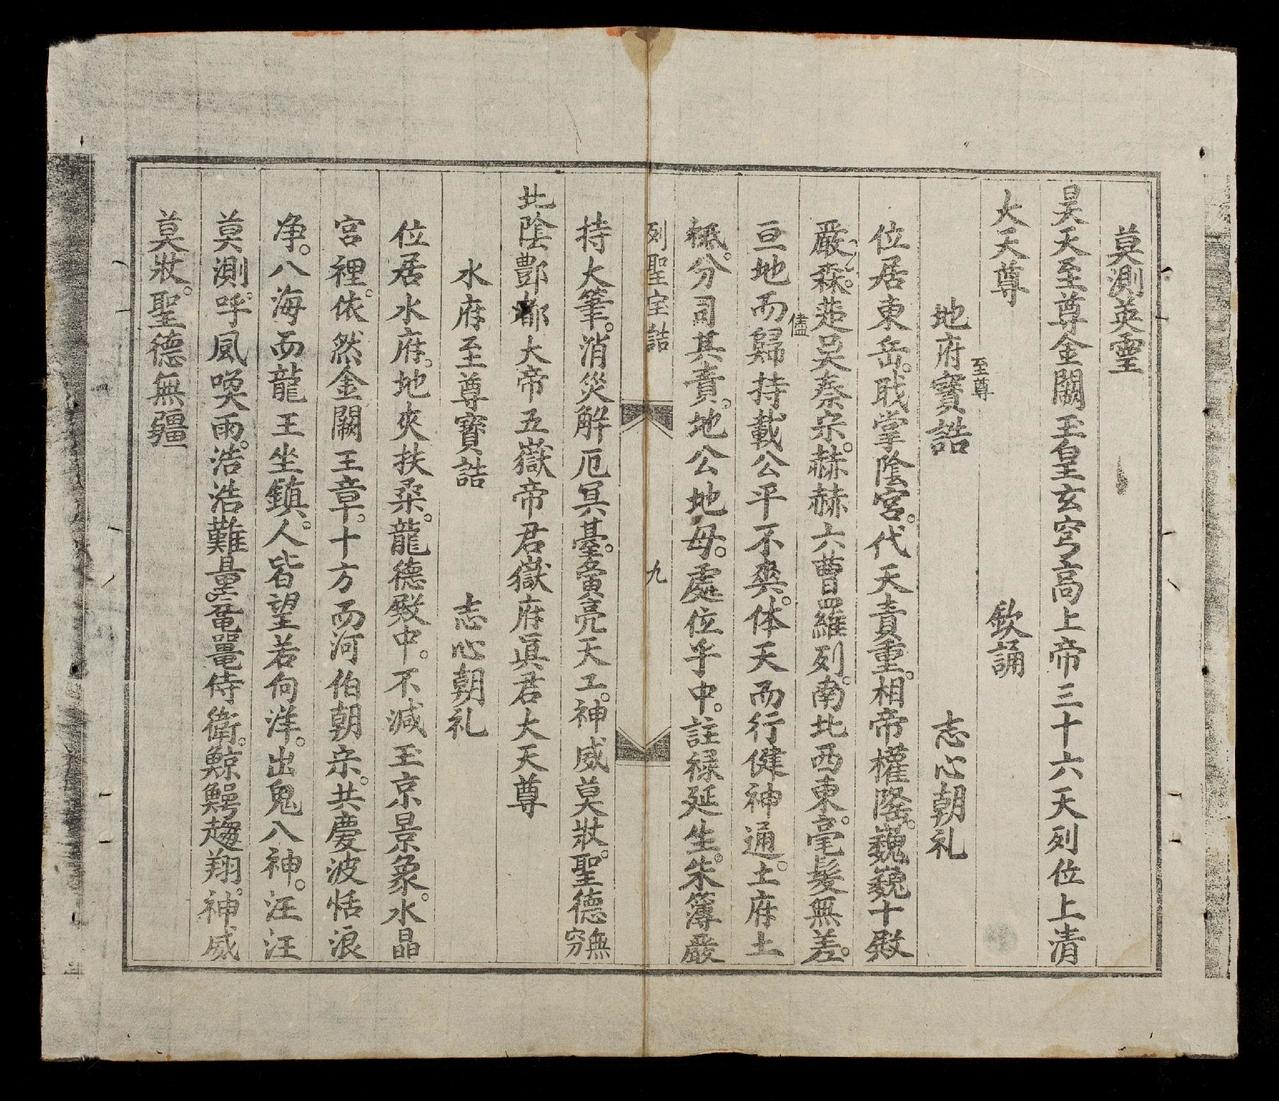 莫測英靈
昊天至尊金闕玉皇玄穹高上帝三十六天列位上清
大天尊　欽誦
地府至尊寶誥　志心朝礼
位居東岳。職掌陰宮。代天責重。相帝權隆。巍巍十殿
嚴森。莚吴秦宋。赫赫六曹羅列。南北西東。毫髮無差。
亘地而儘歸持載公平不爽。体天而行健神通。土府土
祗。分司其責。地公地母。處位乎中。註禄延生。朱簿嚴
列聖宝誥　九
持大筆。消災解厄冥臺。寅亮天工。神威莫狀。聖德無窮
北陰酆都大帝五嶽帝君嶽府眞君大天尊
水府至尊寶誥　志心朝礼
位居水府。地夾扶桑。龍德殿中。不減玉京景象。水晶
宮裡。依然金闕玉章。十方而河伯朝宗。共慶波恬浪
净。八海而龍王坐鎮。人皆望若向洋。出鬼入神。汪汪
莫測。呼風喚雨。浩浩難量。黿鼉侍衛。鯨鰐趨翔。神威
莫狀。聖德無疆